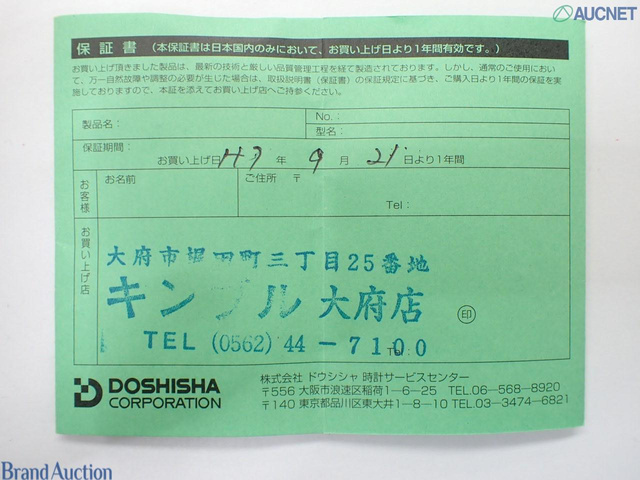 AUCNET
保証書 (本保証書は日本国内のみにおいて、お買い上げ日より1年間有効です。)
お買い上げ頂きました製品は、最新の技術と厳しい品質管理工程を経て製造されております。しかし、通常のご使用におい
て、万一自然故障や調整の必要が生じた場合は、取扱説明書(保証書)の保証規定に基づき、ご購入日より1年間の保証を実
施しておりますので、本証を添えてお買い上げ店へご持参ください。
製品名:
No.:
型名:
保証期間:
お買い上げ日 H7 年 9 月 21 日より1年間
お客様
お名前
ご住所 〒
Tel:
お買い上げ店
大府市堀田町三丁目25番地
キンブル 大府店
印
TEL (0562) 44-7100
DOSHISHA
CORPORATION
株式会社 ドウシシャ 時計サービスセンター
〒556 大阪市浪速区稲荷1-6-25 TEL.06-568-8920
〒140 東京都品川区東大井1-8-10 TEL.03-3474-6821
Brand Auction